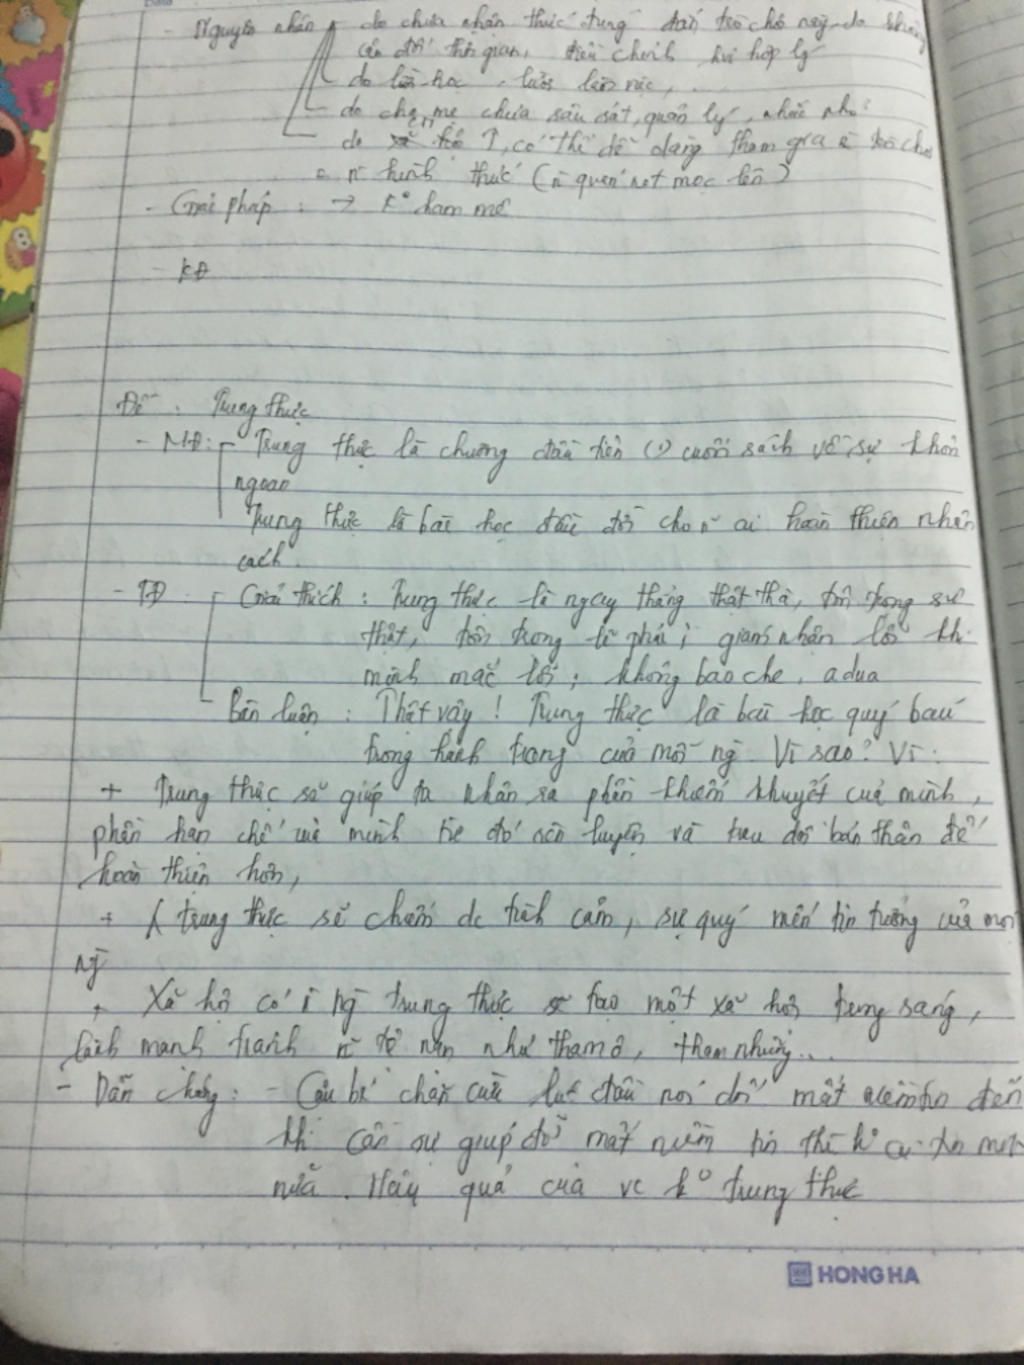 - Nguyên nhân do chưa nhận thức đúng đắn trò chơi này, do không
cân đối thời gian, điều chỉnh hợp lý
do lười học, lười làm việc, ...
do cha mẹ chưa sâu sát, quản lý, nhắc nhở
do ↑, có thể dễ dàng tham gia trò chơi
hình thức (quán net mọc lên)
- Giải pháp : → ko ham mê
- KĐ
Đề : Trung thực
- MĐ: Trung thực là chương đầu tiên (.) cuốn sách về sự khôn
ngoan
Trung thực là bài học đầu đời cho ai hoàn thiện nhân
cách.
- TĐ Giải thích : Trung thực là ngay thẳng thật thà, tôn trọng sự
thật, tôn trọng lẽ phải ; nhận lỗi khi
mình mắc lỗi ; không bao che, a dua
Bàn luận : Thật vậy ! Trung thực là bài học quý báu
trong hành trang của mỗi ng Vì sao? Vì:
+ Trung thực sẽ giúp ta nhận ra phần khiếm khuyết của mình,
phần hạn chế của mình từ đó rèn luyện và trau dồi bản thân để
hoàn thiện hơn,
+ trung thực sẽ chiếm đc tình cảm, sự quý mến tin tưởng của mọi
ng
+ Xã hội có ng trung thực sẽ tạo một xã hội trong sáng,
lành mạnh tránh tệ nạn như tham ô, tham nhũng...
- Dẫn chứng : - Cậu bé chăn cừu lúc đầu nói dối mất niềm tin đến
khi cần sự giúp đỡ mất niềm tin thì ko ai tin
nữa. Hậu quả của vc ko trung thực
HONG HA